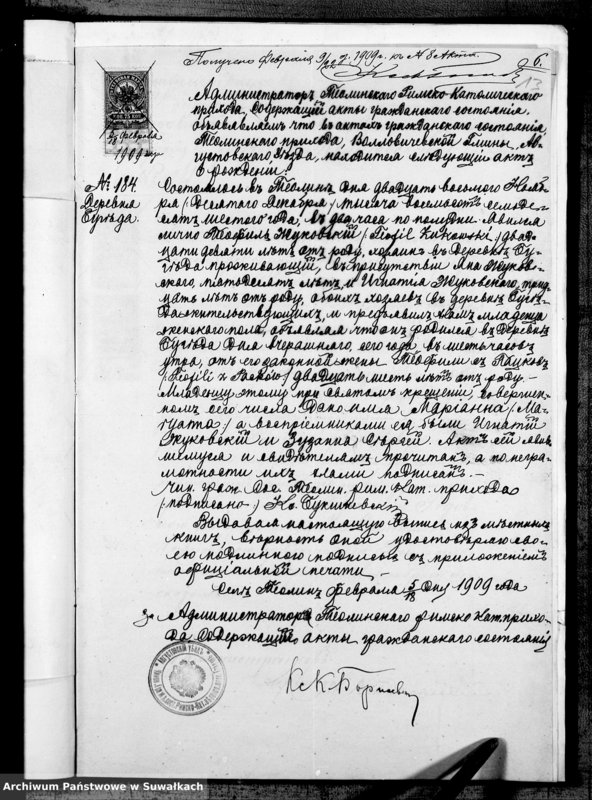 Получено Февраля 9/22 д. 1909 г. къ № 8 Акта.
26.
13
Администраторъ Теолинскаго Римско Католическаго
прихода, Содержащій акты гражданскаго состоянія
объявляемъ что въ актахъ гражданскаго состоянія
Теолинскаго прихода, Волловичевской Гмины, Ав-
густовскаго Уѣзда, находится слѣдующій актъ
о рожденіи.
75 КОП. 75
5/18 февраля
1909 году
№ 184.
Деревня
Состоялось въ Теолинѣ дня двадцать восьмого Нояб-
ря /десятаго Декабря/ тысяча восемьсотъ семьде-
сятъ шестого года, въ два часа по полудни. Явился
лично Теофиль Жуковскій /Teofil Żukowski/ двад-
цати девяти лѣтъ отъ роду, хозяинъ въ деревнѣ
проживающій, въ присутствіи Яна Жуков-
скаго, пятидесяти лѣтъ и Игнатія Жуковскаго, трид-
цать лѣтъ отъ роду, обоихъ хозяевъ въ деревнѣ
жительствующихъ, и предъявилъ намъ младенца
женскаго пола, объявляя что онъ родился въ деревнѣ
дня вчерашняго, сего года въ шесть часовъ
утра, отъ его законной жены Теофили съ
/Teofili z / двадцать шесть лѣтъ отъ роду. –
Младенцу этому при святомъ крещеніи, совершен-
номъ сего числа дано имя Маріанна /Ma-
/ а воспріемниками его были Игнатій
Жуковскій и Зузанна . Актъ сей явив-
шемуся и свидѣтелямъ прочитанъ, а по негра-
мотности ихъ нами подписанъ. –
Чин. граж. Сос. Теолин. рим. кат. прихода
/подписано/ Кс.
Выдавая настоящую Выпись изъ мѣстныхъ
книгъ, вѣрность оной удостовѣряю сво-
ею подлинною подписью съ приложеніемъ
официальной печати. –
Село Теолинъ Февраля 5/18 дня 1909 года
За Администратора Теолинскаго римско кат. прихо-
да Содержащій акты гражданскаго состоянія
Кс К
Archiwum Państwowe w Suwałkach